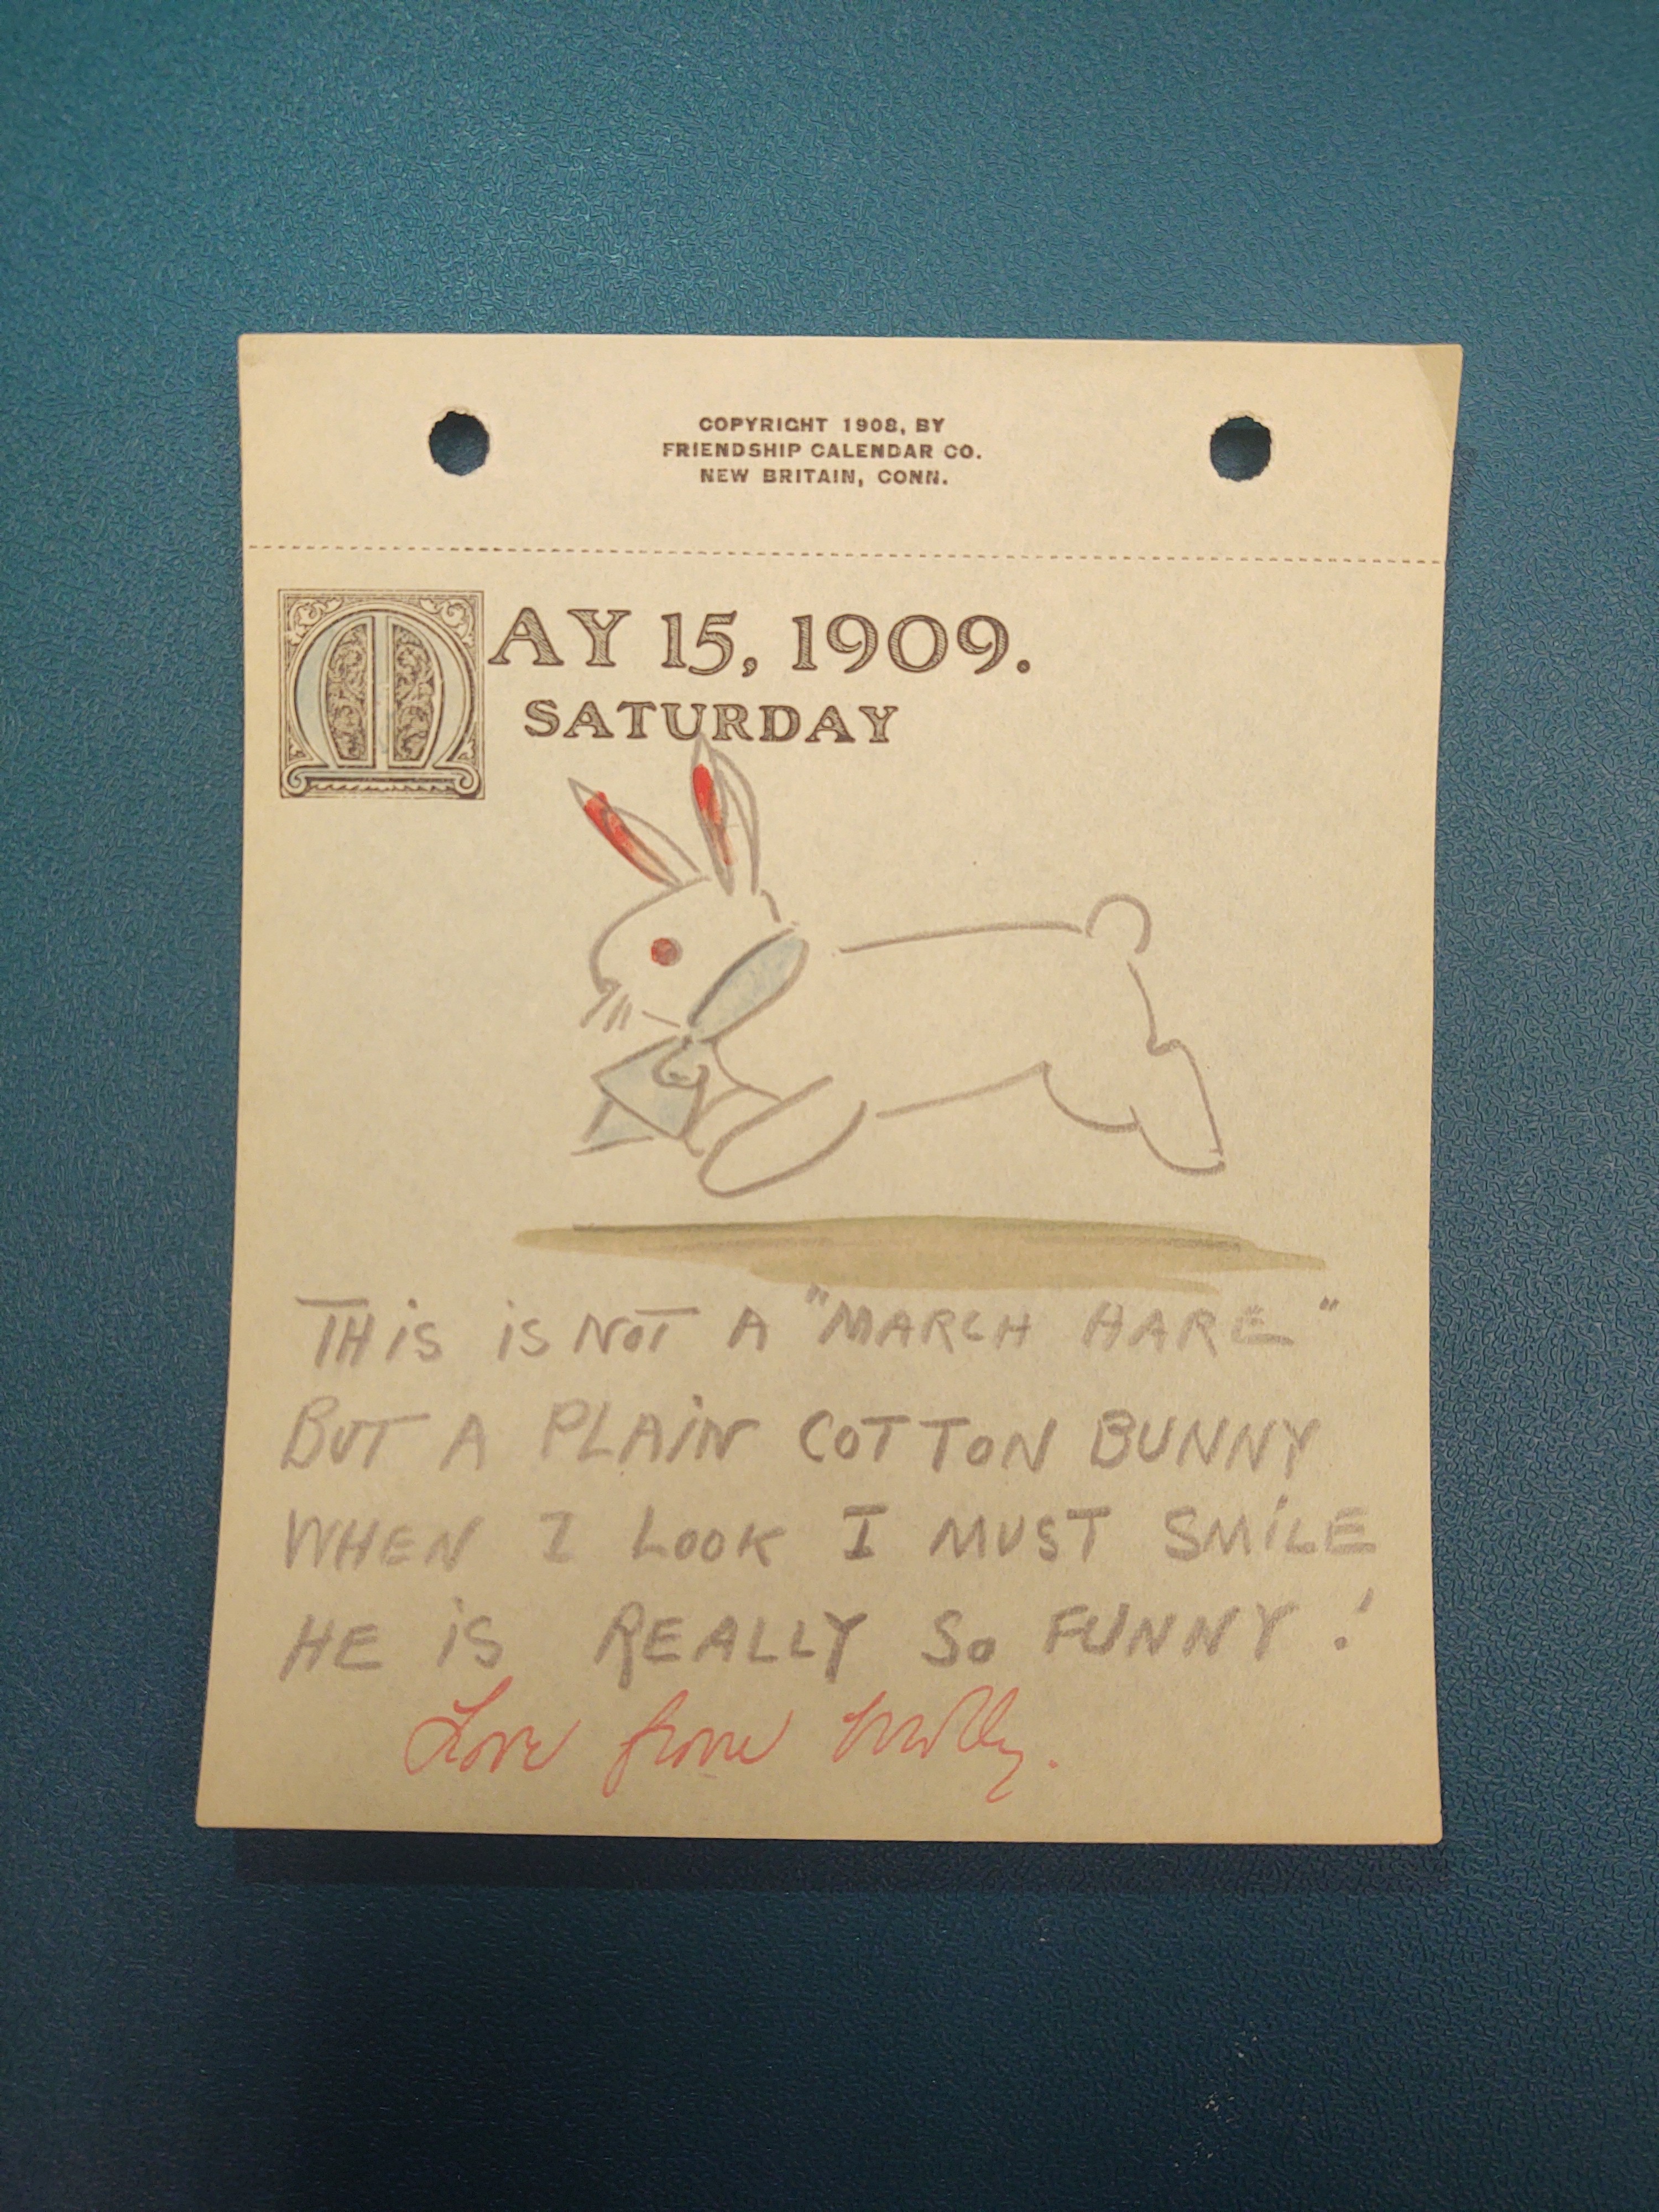 COPYRIGHT 1908, BY
FRIENDSHIP CALENDAR CO.
NEW BRITAIN, CONN.
MAY 15, 1909.
SATURDAY
THiS iS NOT A "MARCH HARE"
BUT A PLAiN COTTON BUNNY
WHEN I LOOK I MUST SMiLE
HE iS REALLY SO FUNNY!
Love from Molly.